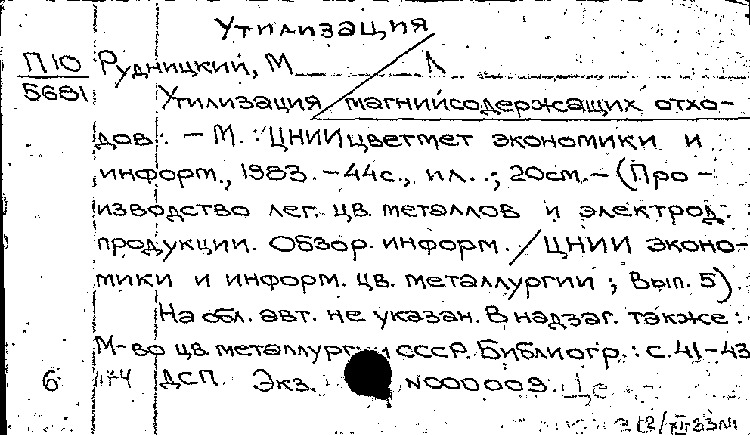 Утилизация
П10 Рудницкий, М
5681
Утилизация магнийсодержащих отхо-
дов. - М. : ЦНИИцветмет экономики и
информ., 1983. - 44с., ил. ; 20см. - (Про-
изводство лег. цв. металлов и электрод.
продукции. Обзор. информ. / ЦНИИ эконо-
мики и информ. цв. металлургии ; Вып. 5).
На обл. авт. не указан. В надзаг. также:
М-во цв. металлургии СССР. Библиогр.: с.41-43
6 174 ДСП. Экз. N000009.